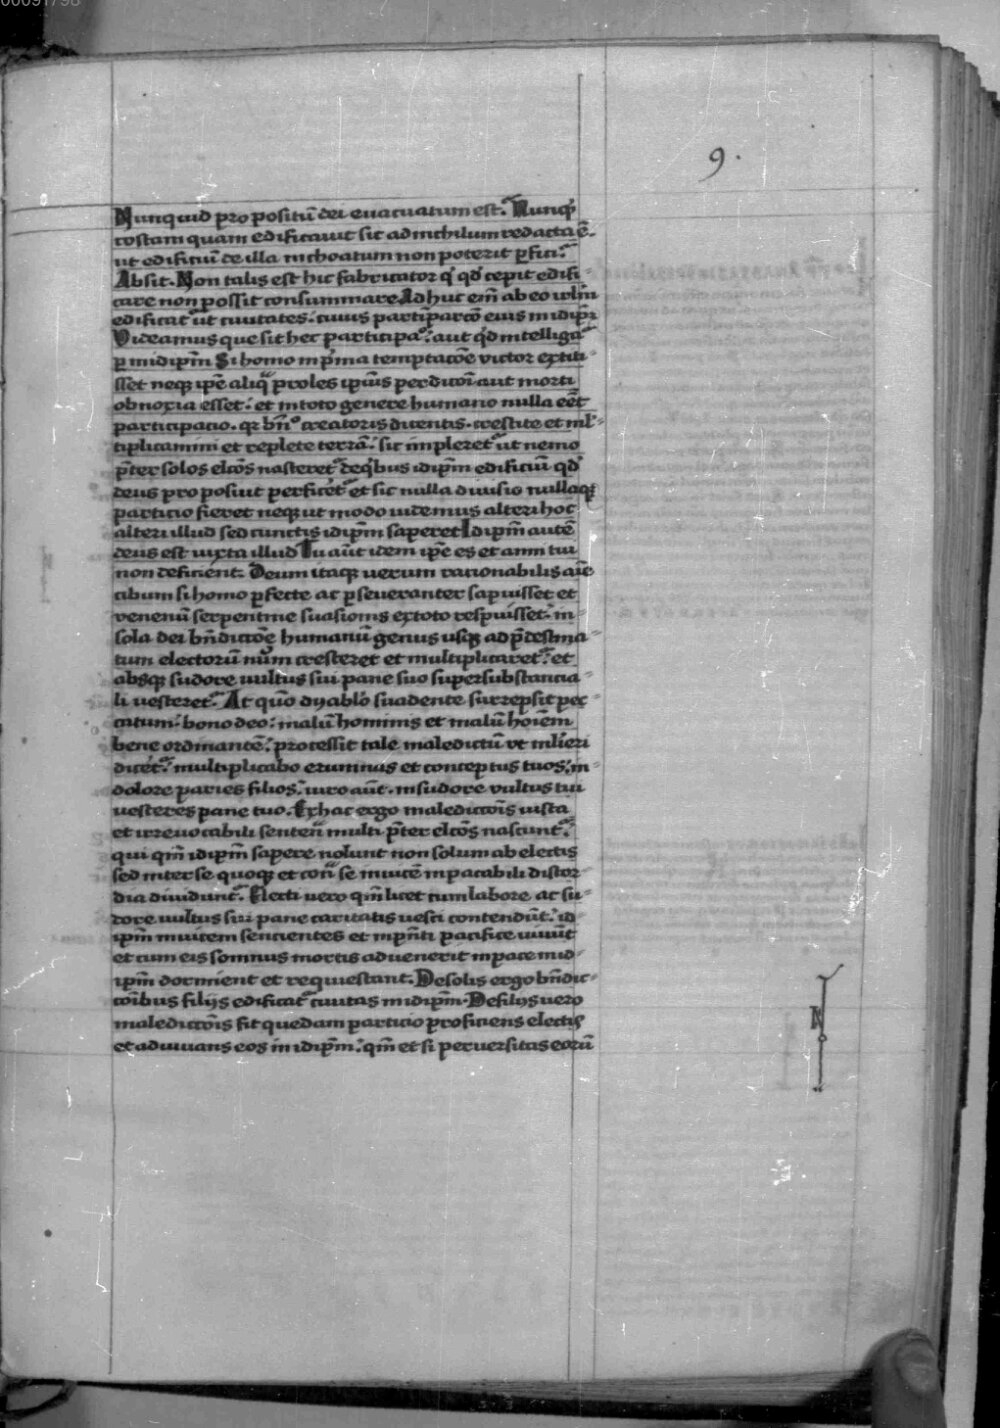 00091798
9.
Nunquid propositū dei euacuatum est. Nunqͥd
costam quam edificauit sic ad nichilum redacta ē.
ut edificiū de illa inchoatum non poterit p̄fici.
Absit. Non talis est hic fabricator qͥ qd̓ cepit edifi-
care non possit consummare Ad huc em̄ ab eo ierl̄m
edificat᷑ ut ciuitates. cuius participarcō eius in idip̄m
Videamus que sit hec participa. aut qͥd intelligat᷑
p̱ in idip̄m Si homo in pͥma temptacōe victor extiti-
sset neqꝫ ip̄e aliqͣ proles ip̄ius perdicōi aut morti
obnoxia esset. et in toto genere humano nulla eēt
participacio. qꝛ bn̄o creatoris dicentis. crescite et ml̓-
tiplicamini et replete terrā. sic impleret᷑ ut nemo
p̄ter solos elcōs nasceret᷑ de qͥbus idip̄m edificiū qd̓
deus proposuit perficeret᷑ et sic nulla diuisio nullaqꝫ
particio fieret neqꝫ ut modo uidemus alteri hoc
alteri illud sed cunctis idip̄m saperet Idip̄m autē
deus est iuxta illud Tu aūt idem ip̄e es et anni tui
non deficient. Deum itaqꝫ uerum rationabilis aīe
cibum si homo p̱fecte ac p̱seueranter sapuisset et
venenū serpentine suasionis ex toto respuisset. in
sola dei bn̄dictōe humanū genus usqꝫ ad p̄destina-
tum electorū nūm cresceret et multiplicaret᷑. et
absqꝫ sudore uultus sui pane suo supersubstancia-
li uesceret᷑. At quō dyablō suadente surrepsit pec-
catum. bono deo. malū hominis et malū hoīem
bene ordinante. processit tale maledictū vt ml̓ieri
diceret᷑. multiplicabo erumnas et conceptus tuos. in
dolore paries filios. uiro aūt. in sudore vultus tui
uesceres pane tuo. Ex hac ergo maledictōis iusta
et irreuocabili sentent̄ multi p̄ter elcōs nascunt᷑.
qui qm̄ idip̄m sapere nolunt non solum ab electis
sed inter se quoqꝫ et contͣ se inuicē inpacabili discor-
dia diuidunt᷑. Electi uero qm̄ licet cum labore ac su-
dore uultus sui pane caritatis uesci contendūt. id-
ip̄m inuicem sencientes et in pn̄ti pacifice uiuūt
et cum eis somnus mortis aduenerit in pace in id-
ip̄m dormient et requiescant. De solis ergo bn̄dic-
cōibus filijs edificat᷑ ciuitas in idip̄m. De filijs uero
maledictōis fit quedam particio proficiens electis
et adiuuans eos in idip̄m. qm̄ et si peruersitas eorū
N